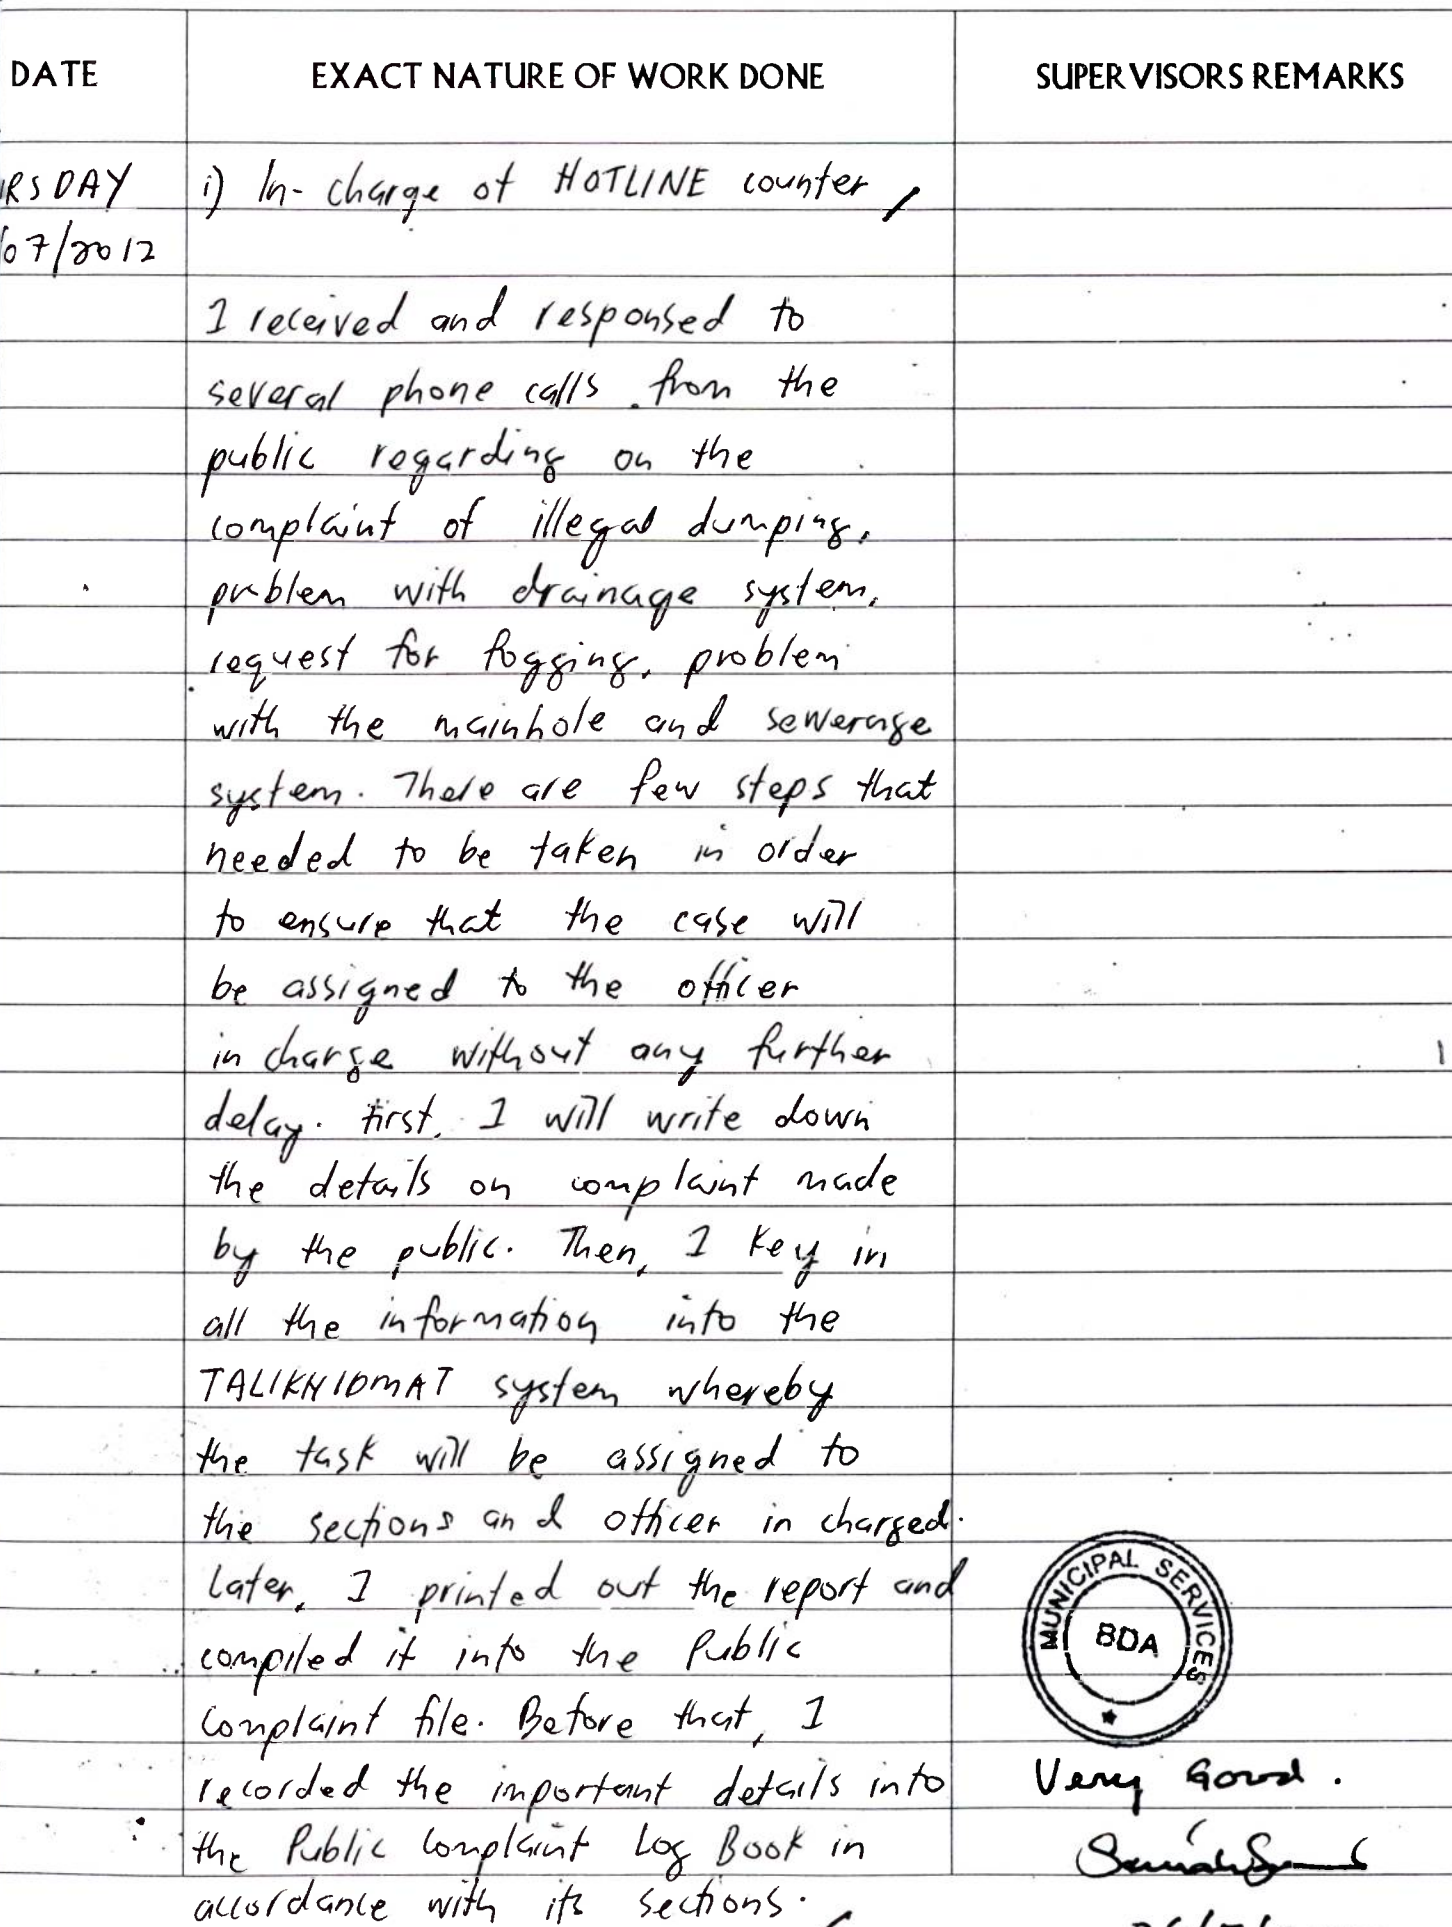 DATE EXACT NATURE OF WORK DONE SUPERVISORS REMARKS
RSDAY i) In-charge of HOTLINE counter,
/07/2012
I received and responsed to
several phone calls from the
public regarding on the
complaint of illegal dumping,
problem with drainage system,
request for fogging, problem
with the mainhole and sewerage
system. There are few steps that
needed to be taken in order
to ensure that the case will
be assigned to the officer
in charge without any further
delay. First, I will write down
the details on complaint made
by the public. Then, I key in
all the information into the
TALIKHIDMAT system whereby
the task will be assigned to
the sections and officer in charged.
Later, I printed out the report and
compiled it into the Public
Complaint file. Before that, I
recorded the important details into
the Public Complaint Log Book in
accordance with its sections.
MUNICIPAL SERVICES
BDA
Very Good.